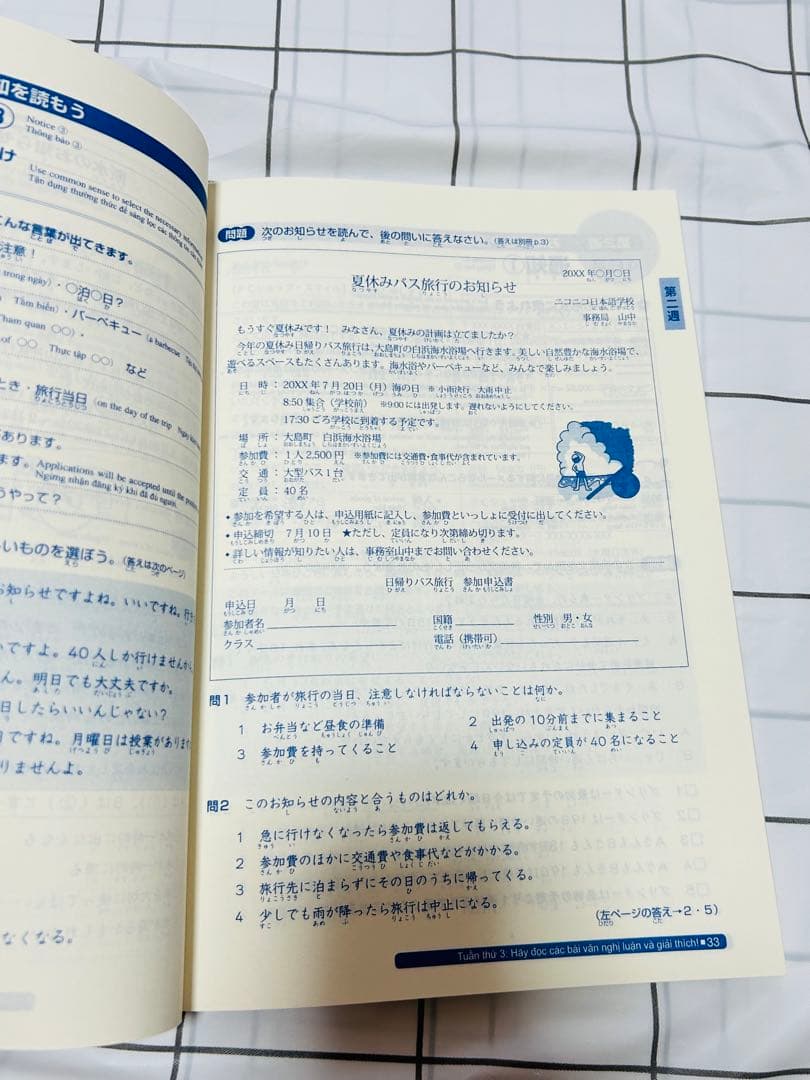 知を読もう
Notice ③
Thông báo ③
Use common sense to select the necessary
Tận dụng thường thức để sàng lọc các thông tin
こんな言葉が出てきます。
注意!
trong ngày)・○泊○日?
Tắm biển)・バーベキュー (a barbecue
Tham quan ○○)・
of ○○ Thực tập ○○) など
とき・旅行当日 (on the day of the trip
があります。
ます。 Applications will be accepted until the
Ngưng nhận đăng ký khi đã đủ người.
うやって?
いものを選ぼう。(答えは次のページ)
お知らせですよね。いいですね。行
いですよ。40人しか行けませんから
せん。明日でも大丈夫ですか。
日したらいいんじゃない?
日ですね。月曜日は授業があります
りませんよ。
なくなる。
問題 次のお知らせを読んで、後の問いに答えなさい。(答えは別冊p.3)
第二週
20XX年○月○日
夏休みバス旅行のお知らせ
ニコニコ日本語学校
事務局 山中
もうすぐ夏休みです! みなさん、夏休みの計画は立てましたか?
今年の夏休み日帰りバス旅行は、大島町の白浜海水浴場へ行きます。美しい自然豊かな海水浴場で、
遊べるスペースもたくさんあります。海水浴やバーベキューなど、みんなで楽しみましょう。
日 時:20XX年7月20日(月)海の日 ※小雨決行 大雨中止
8:50 集合(学校前) ※9:00には出発します。遅れないようにしてください。
17:30 ごろ学校に到着する予定です。
場 所:大島町 白浜海水浴場
参加費:1人2,500円 ※参加費には交通費・食事代が含まれています。
交 通:大型バス1台
定 員:40名
・参加を希望する人は、申込用紙に記入し、参加費といっしょに受付に出してください。
・申込締切 7月10日 ★ただし、定員になり次第締め切ります。
・詳しい情報が知りたい人は、事務室山中までお問い合わせください。
日帰りバス旅行 参加申込書
申込日 月 日
参加者名 国籍 性別 男・女
クラス 電話(携帯可)
問1 参加者が旅行の当日、注意しなければならないことは何か。
1 お弁当など昼食の準備 2 出発の10分前までに集まること
3 参加費を持ってくること 4 申し込みの定員が40名になること
問2 このお知らせの内容と合うものはどれか。
1 急に行けなくなったら参加費は返してもらえる。
2 参加費のほかに交通費や食事代などがかかる。
3 旅行先に泊まらずにその日のうちに帰ってくる。
4 少しでも雨が降ったら旅行は中止になる。
(左ページの答え→2・5)
Tuần thứ 3. Hãy đọc các bài văn nghị luận và giải thích! ■33